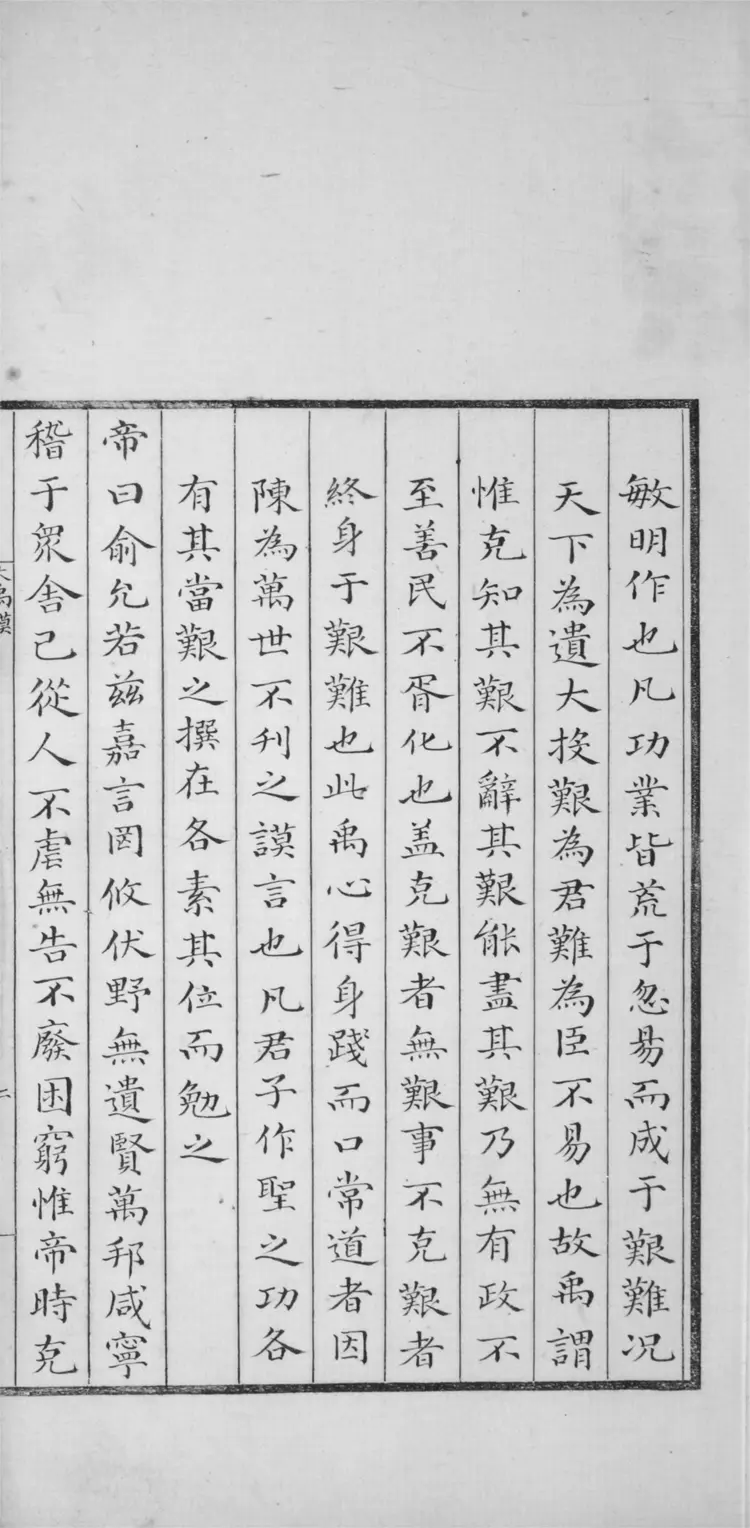 敏明作也凡功業皆荒于忽易而成于艱難况
天下為遺大投艱為君難為臣不易也故禹謂
惟克知其艱不辭其艱能盡其艱乃無有政不
至善民不胥化也盖克艱者無艱事不克艱者
終身于艱難也此禹心得身踐而口常道者因
陳為萬世不刋之謨言也凡君子作聖之功各
有其當艱之撰在各素其位而勉之
帝曰俞允若兹嘉言罔攸伏野無遺賢萬邦咸寧
稽于衆舍己從人不虐無告不廢困窮惟帝時克
大禹謨
二